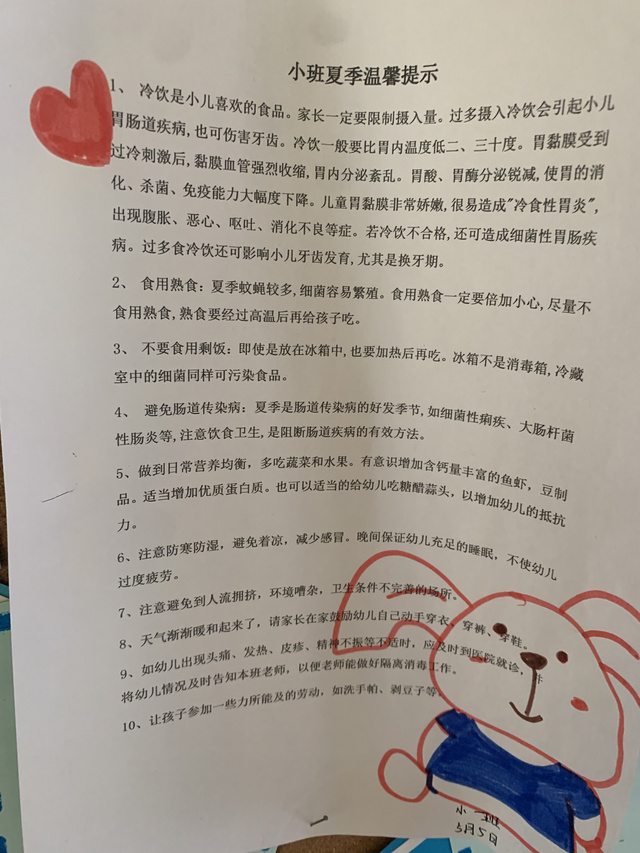 小班夏季温馨提示
1、 冷饮是小儿喜欢的食品。家长一定要限制摄入量。过多摄入冷饮会引起小儿
胃肠道疾病,也可伤害牙齿。冷饮一般要比胃内温度低二、三十度。胃黏膜受到
过冷刺激后,黏膜血管强烈收缩,胃内分泌紊乱。胃酸、胃酶分泌锐减,使胃的消
化、杀菌、免疫能力大幅度下降。儿童胃黏膜非常娇嫩,很易造成"冷食性胃炎",
出现腹胀、恶心、呕吐、消化不良等症。若冷饮不合格,还可造成细菌性胃肠疾
病。过多食冷饮还可影响小儿牙齿发育,尤其是换牙期。
2、 食用熟食：夏季蚊蝇较多,细菌容易繁殖。食用熟食一定要倍加小心,尽量不
食用熟食,熟食要经过高温后再给孩子吃。
3、 不要食用剩饭：即使是放在冰箱中,也要加热后再吃。冰箱不是消毒箱,冷藏
室中的细菌同样可污染食品。
4、 避免肠道传染病：夏季是肠道传染病的好发季节,如细菌性痢疾、大肠杆菌
性肠炎等,注意饮食卫生,是阻断肠道疾病的有效方法。
5、做到日常营养均衡，多吃蔬菜和水果。有意识增加含钙量丰富的鱼虾，豆制
品。适当增加优质蛋白质。也可以适当的给幼儿吃糖醋蒜头，以增加幼儿的抵抗
力。
6、注意防寒防湿，避免着凉，减少感冒。晚间保证幼儿充足的睡眠，不使幼儿
过度疲劳。
7、注意避免到人流拥挤，环境嘈杂，卫生条件不完善的场所。
8、天气渐渐暖和起来了，请家长在家鼓励幼儿自己动手穿衣、穿裤、穿鞋。
9、如幼儿出现头痛、发热、皮疹、精神不振等不适时，应及时到医院就诊，并
将幼儿情况及时告知本班老师，以便老师能做好隔离消毒工作。
10、让孩子参加一些力所能及的劳动，如洗手帕、剥豆子等。
小一班
5月5日